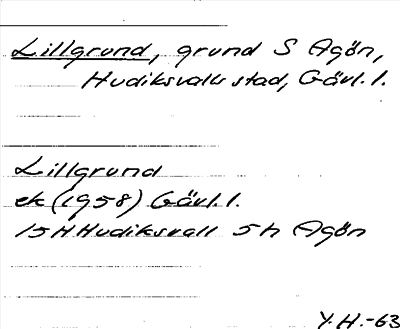 Lillgrund, grund S Agön,
Hudiksvalls stad, Gävl. l.
Lillgrund
ek (1958) Gävl. l.
15H Hudiksvall 5h Agön
Y.H.-63